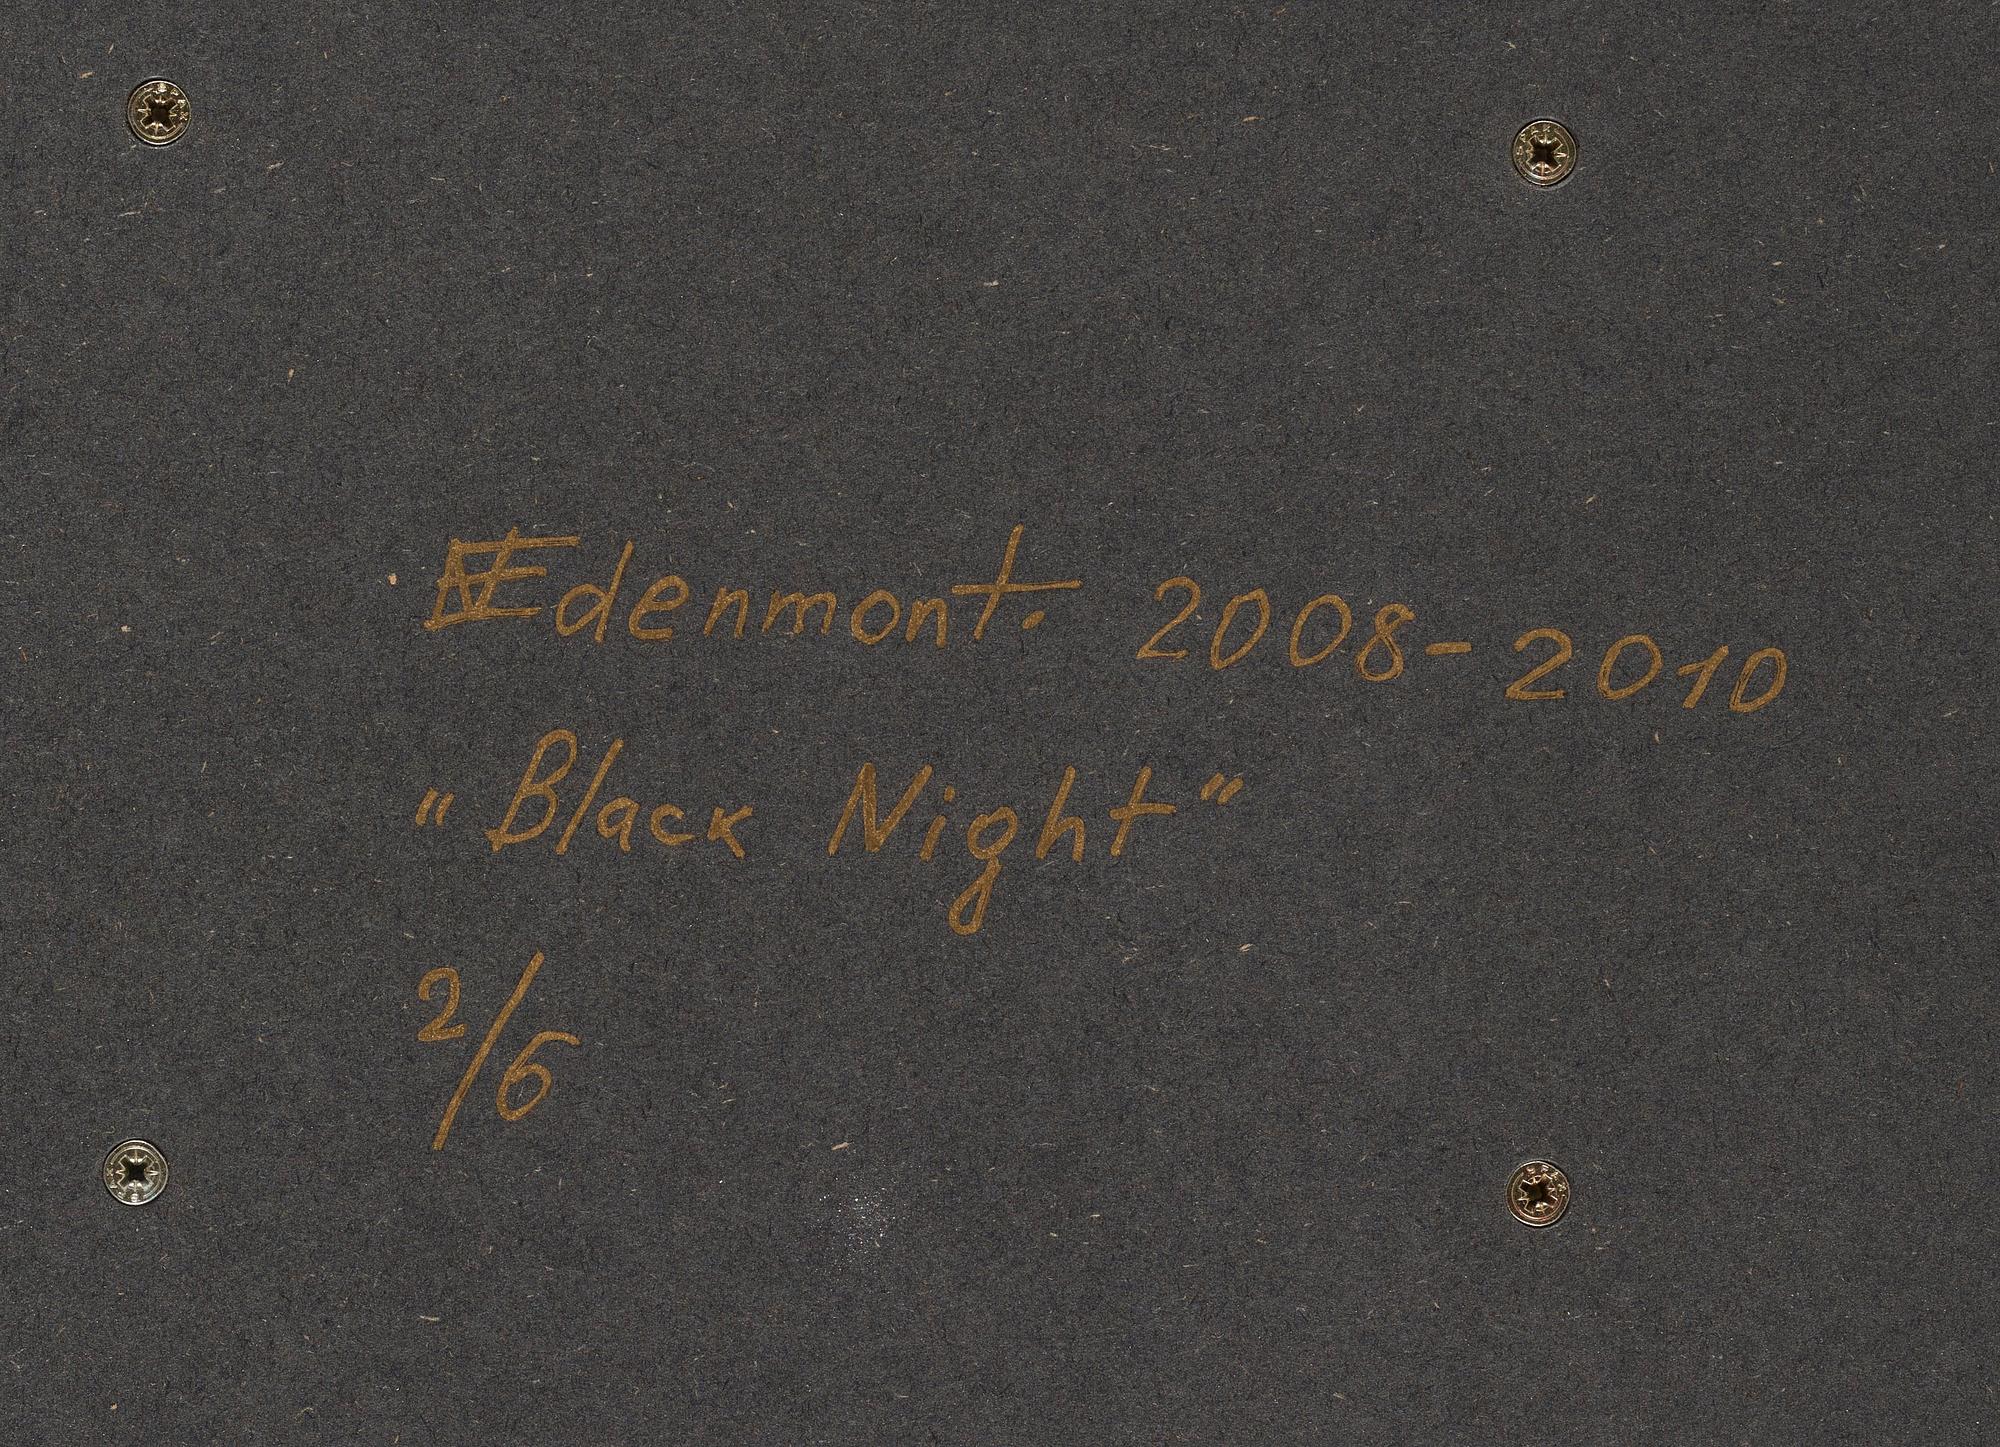 NEdenmont. 2008-2010
"Black Night"
2/6